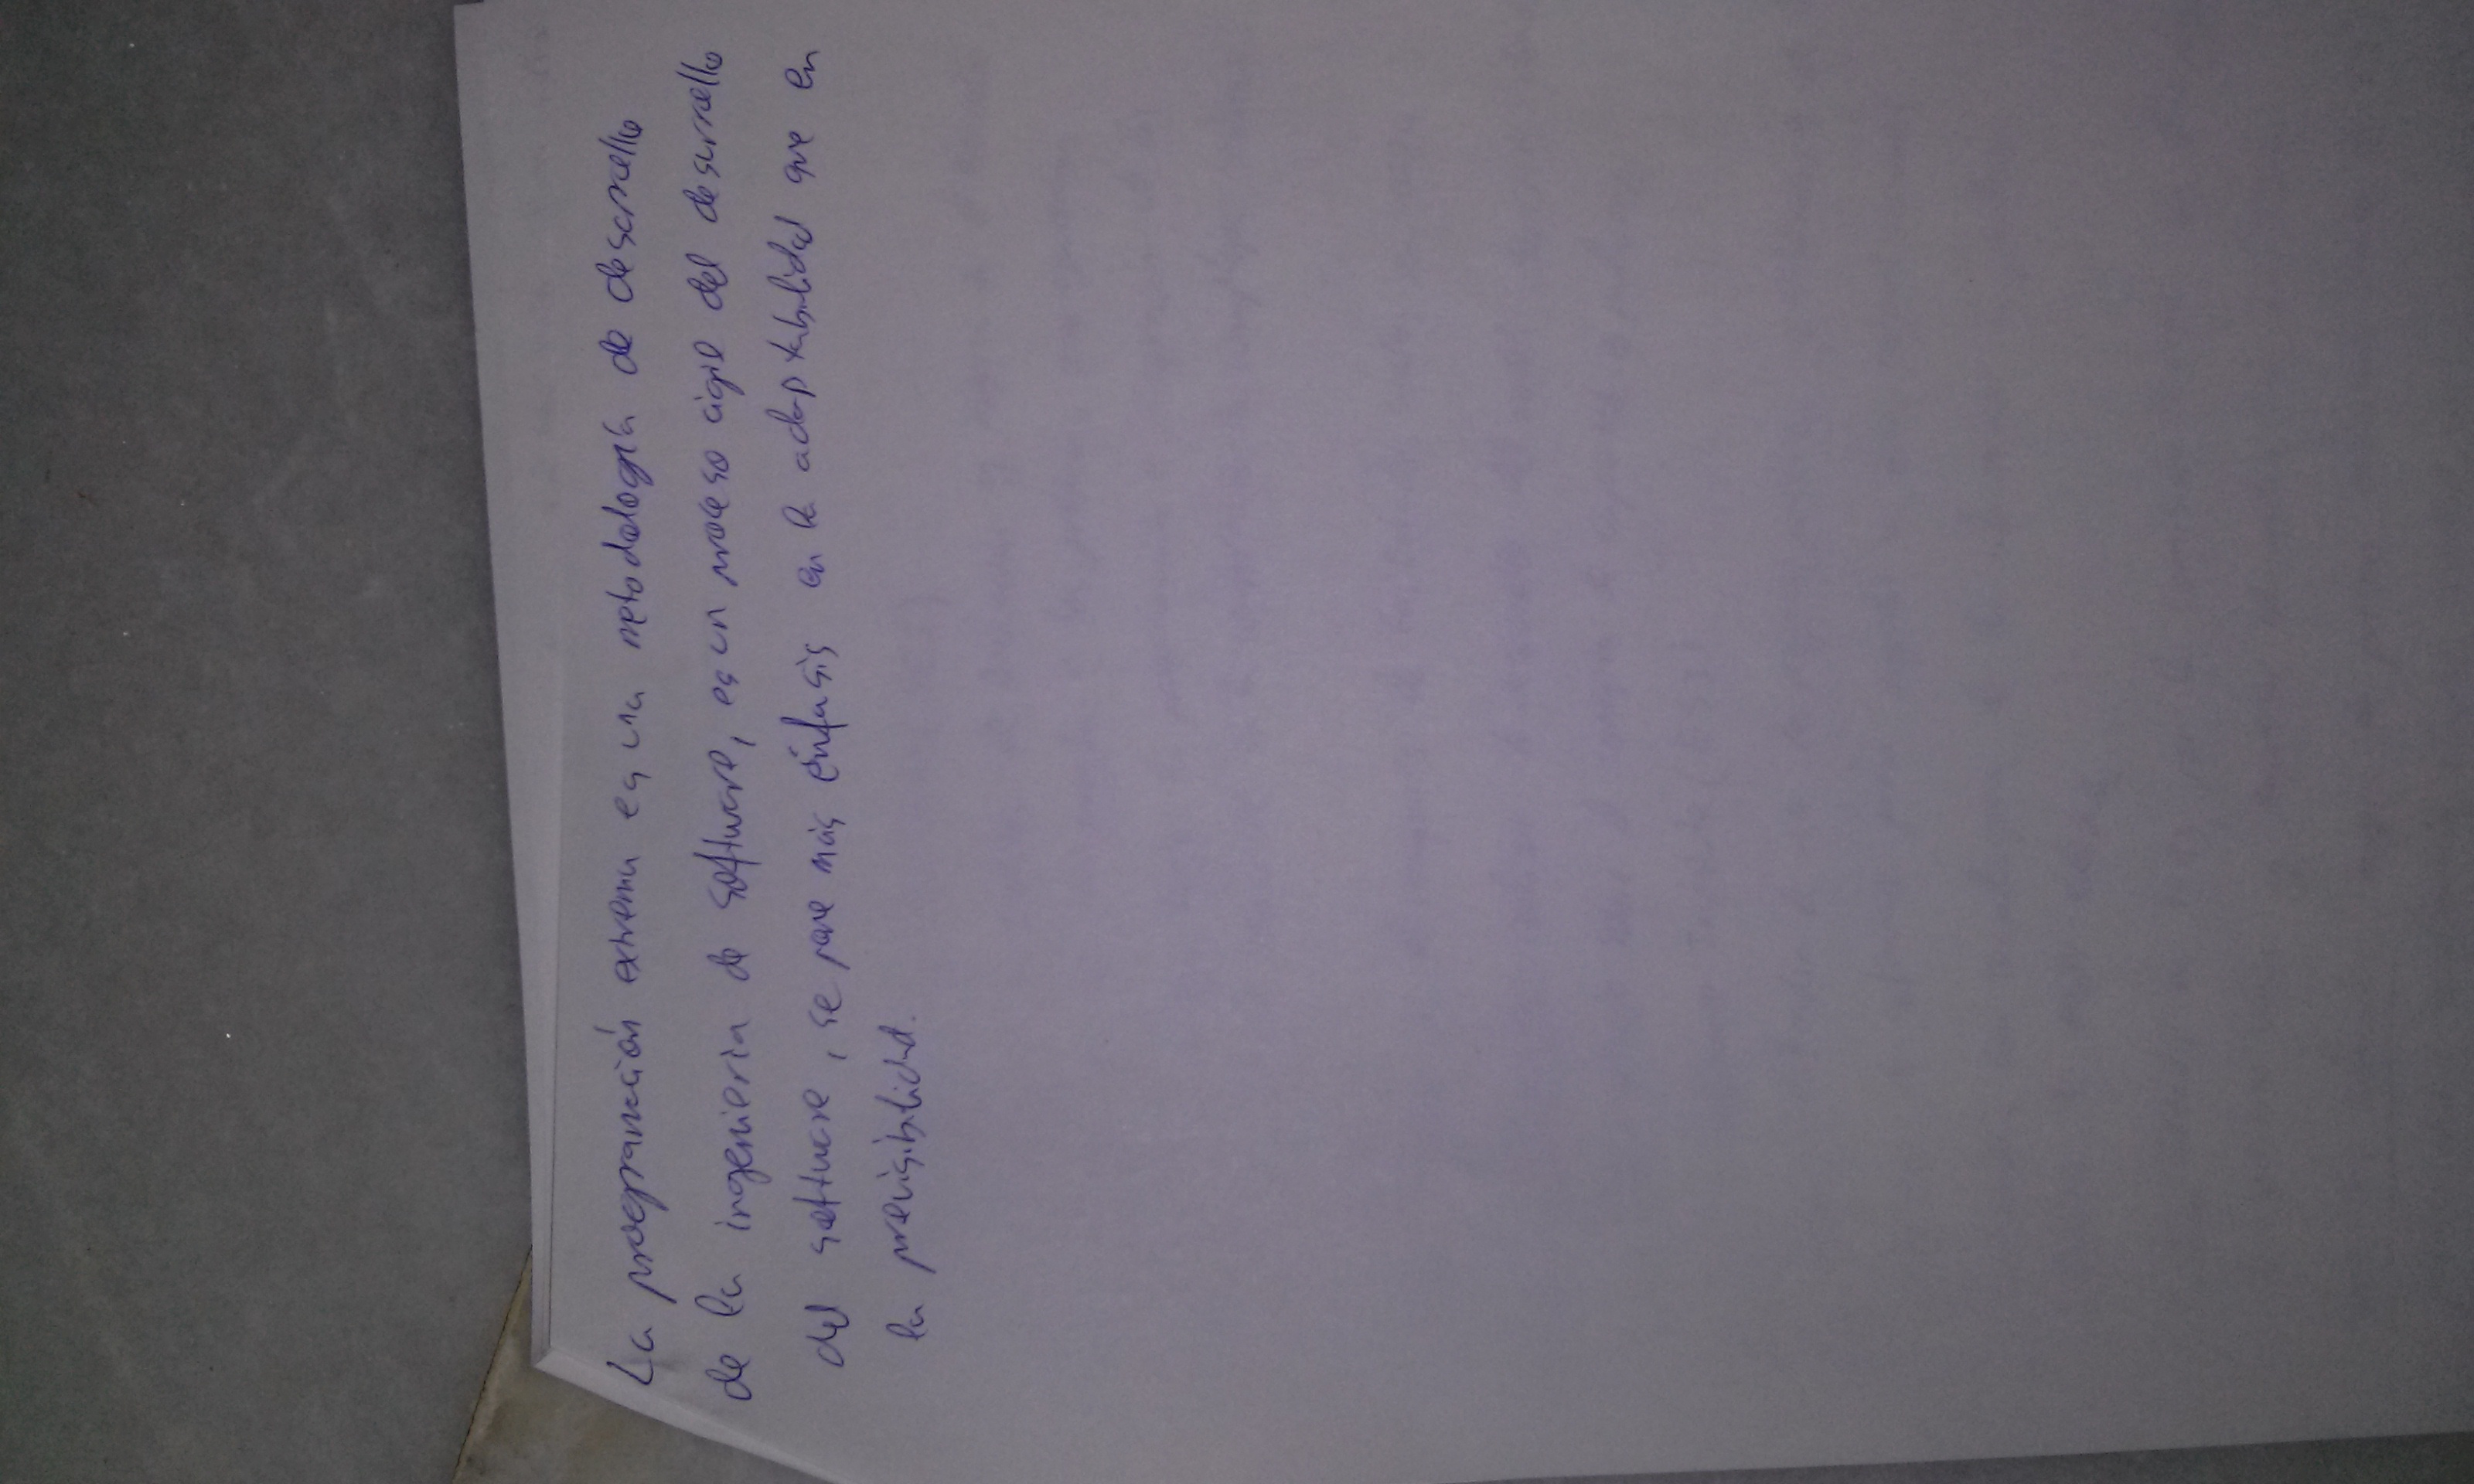 La programación extrema es una metodología de desarrollo
de la ingenieria de software, es un proceso ágil del desarrollo
del software, se pone más énfasis en la adaptabilidad que en
la previsibilidad.